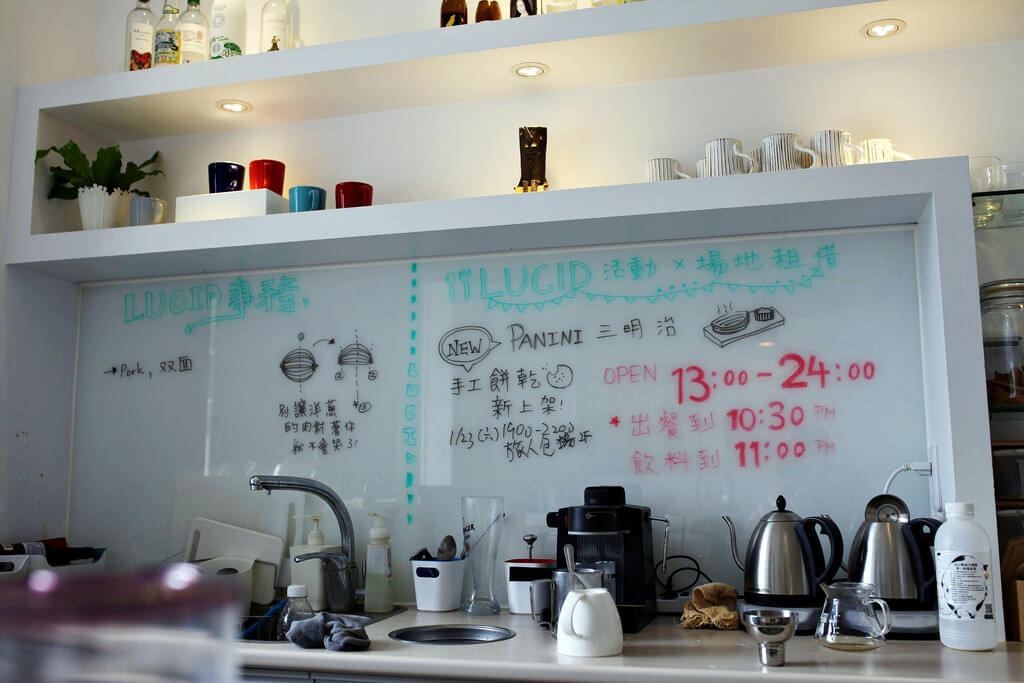 LUCID 事務
→Pork, 双面
別讓洋蔥
的肉對著你
就不會哭了!
LUCID
LUCID 活動 × 場地租借
NEW
PANINI 三明治
手工餅乾
新上架!
1/23(六) 1900-2200
旅人包場
OPEN 13:00-24:00
* 出餐到 10:30 PM
飲料到 11:00 PM